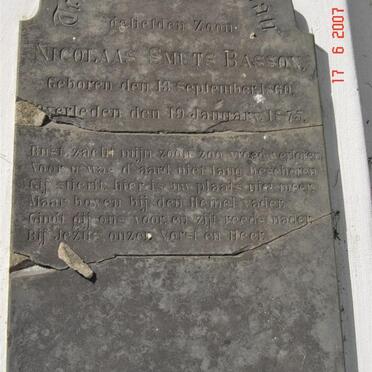 geliefden Zoon
NICOLAAS SMUTS BASSON,
Geboren den 13 September 1860.
Overleden den 19 January 1875.
Rust zacht mijn zoon zoo vroeg verloren
Voor u was d'aard niet lang beschoren
Gij stierft hier is uw plaats niet meer
Maar boven bij den Hemel vader.
Gindt gij ons voor en zijt reeds nader
Bij Jezus onzen Vorst en Heer.
17 6 2007